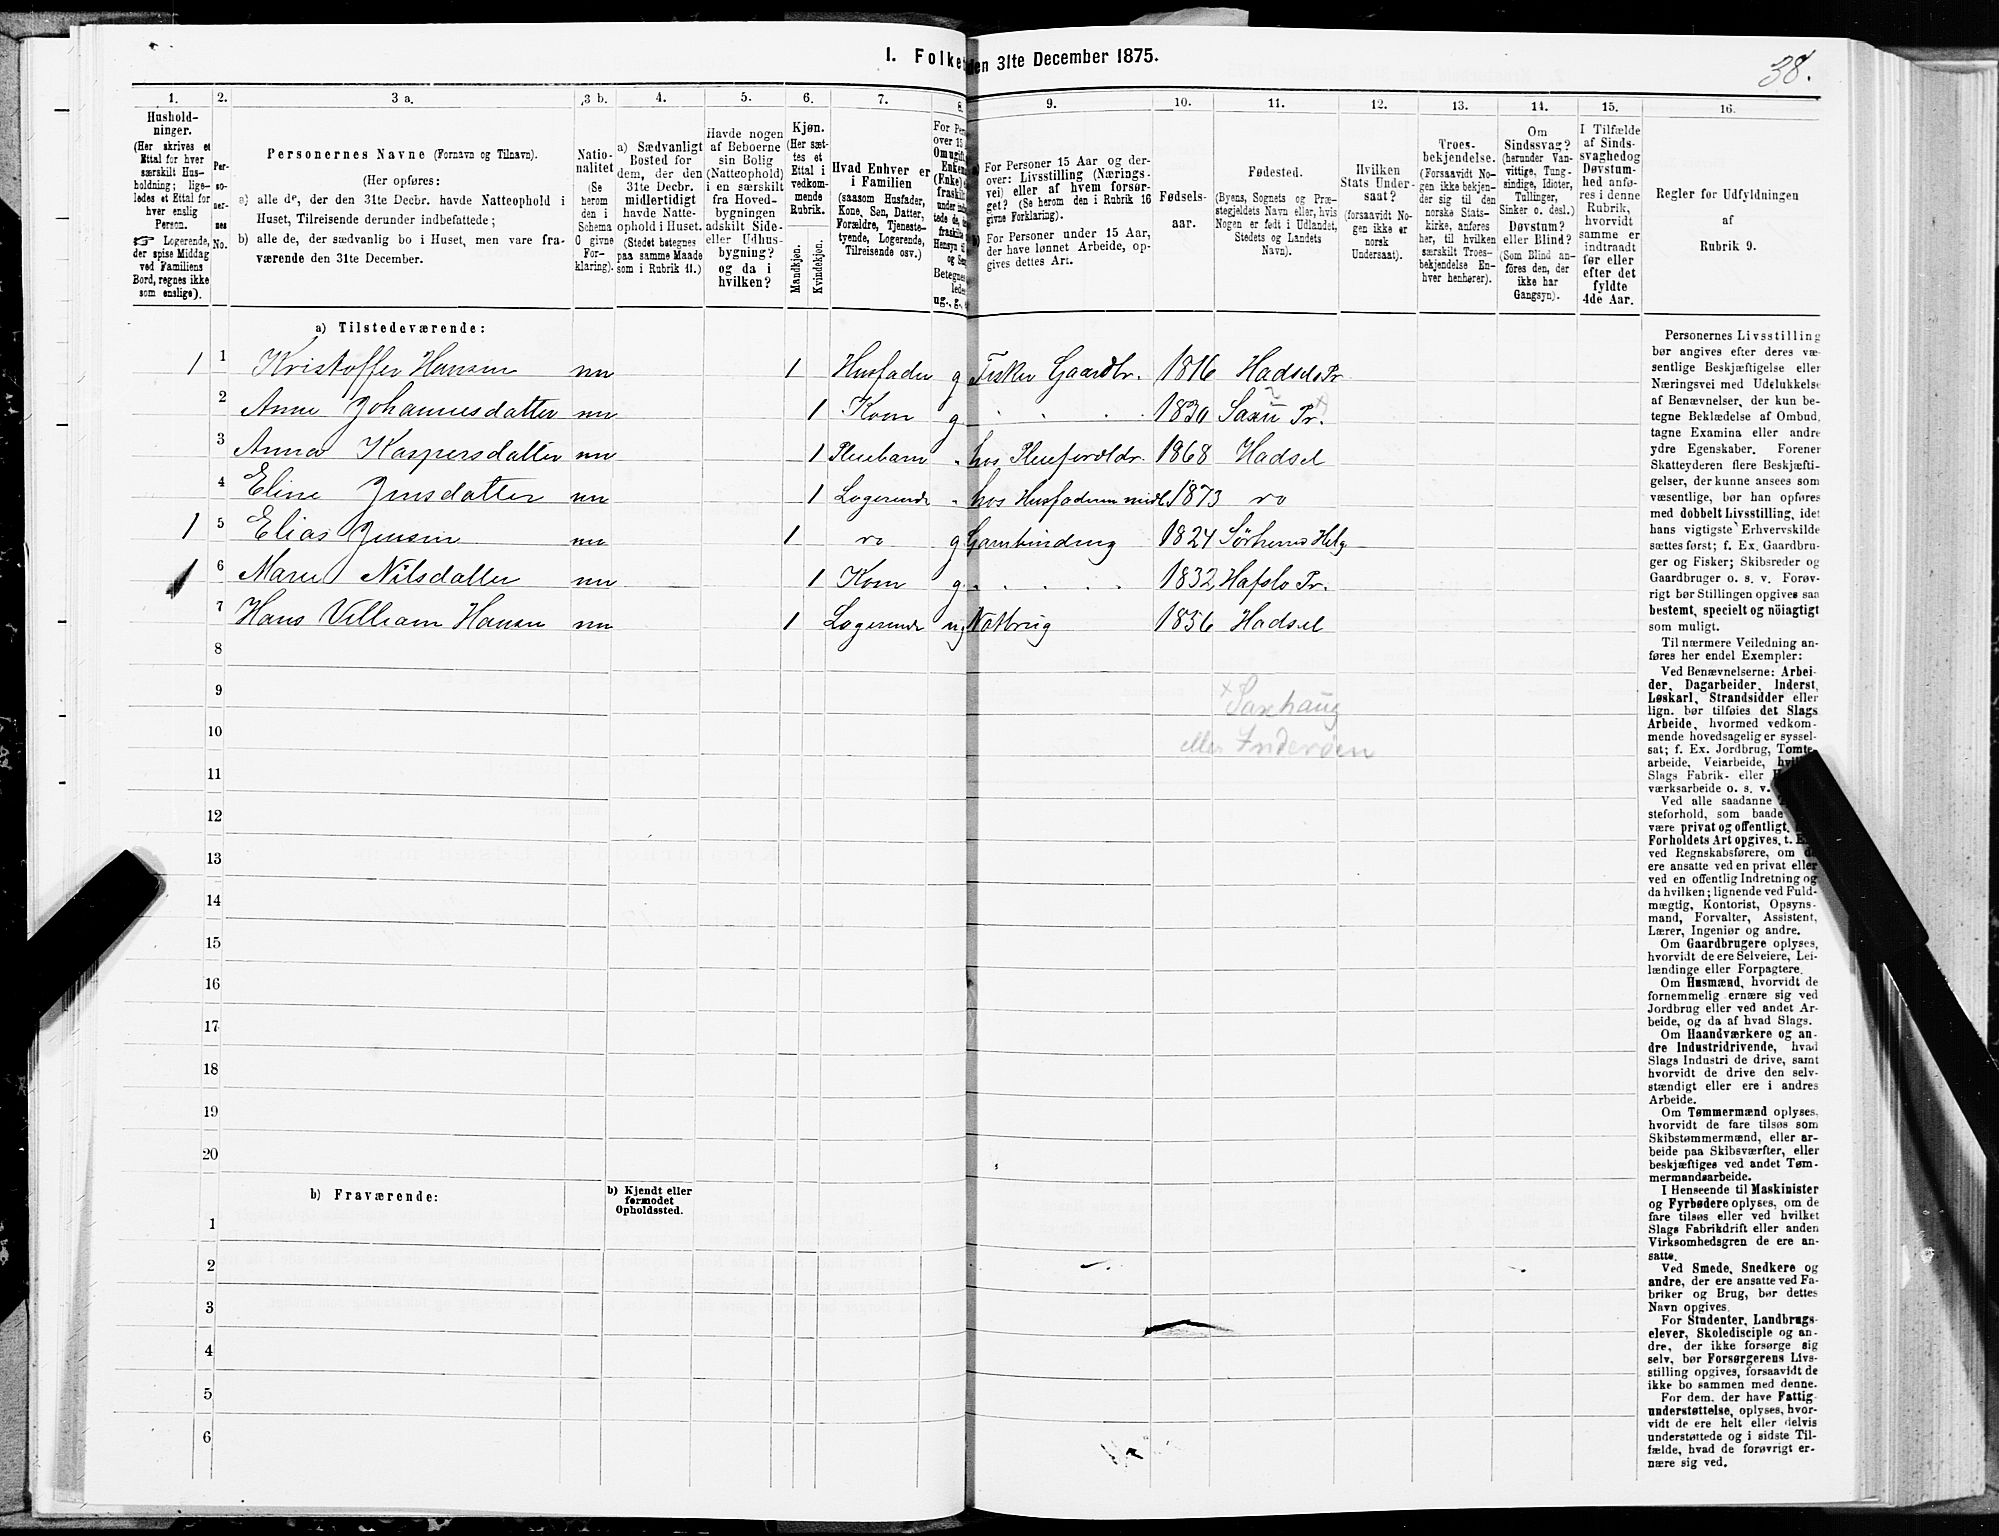 I. Folke
den 31te December 1875.
38.
1. 2. 3 a. 3 b. 4. 5. 6. 7. 8. 9. 10. 11. 12. 13. 14. 15. 16.
Hushold-
ninger.
(Her skrives et
Ettal for hver
særskilt Hus-
holdning; lige-
ledes et Ettal for
hver enslig
Person.
☞ Logerende,
der spise Middag
ved Familiens
Bord, regnes ikke
som enslige).
Per-
so-
ner-
nes
No.
Personernes Navne (Fornavn og Tilnavn).
(Her opføres:
a) alle de, der den 31te Decbr. havde Natteophold i
Huset, Tilreisende derunder indbefattede;
b) alle de, der sædvanlig bo i Huset, men vare fra-
værende den 31te December.
Natio-
nalitet
(Se
herom
den i
Schema
G givne
For-
klaring).
a) Sædvanligt
Bosted for
dem, der den
31te Decbr.
midlertidigt
havde Natte-
ophold i Huset.
(Stedet betegnes
paa samme Maade
som i Rubrik 11.)
Havde nogen
af Beboerne
sin Bolig
(Natteophold)
i en særskilt
fra Hoved-
bygningen
adskilt Side-
eller Udhus-
bygning?
og da i
hvilken?
Kjøn.
(Her sæt-
tes et
Ettal i
vedkom-
mende
Rubrik.
Mandkjøn.
Kvindekjøn.
Hvad Enhver er
i Familien
(saasom Husfader,
Kone, Søn, Datter,
Forældre, Tjeneste-
tyende, Logerende,
Tilreisende osv.).
For Per
over 15
Omugift
Enken
(Enke)
fraskilt
Hensyn til
og
Betegnes
ledes
ug., g.,
For Personer 15 Aar og der-
over: Livsstilling (Nærings-
vei) eller af hvem forsør-
get? (Se herom den i Rubrik 16
givne Forklaring).
For Personer under 15 Aar,
der have lønnet Arbeide, op-
gives dettes Art.
Fødsels-
aar.
Fødested.
(Byens, Sognets og Præ-
stegjeldets Navn eller, hvis
Nogen er født i Udlandet,
Stedets og Landets
Navn).
Hvilken
Stats Under-
saat?
(forsaavidt No-
gen ikke er
norsk
Undersaat).
Troes-
bekjendelse.
(Forsaavidt No-
gen ikke bekjen-
der sig til den
norske Stats-
kirke, anføres
her, til hvilken
særskilt Troes-
bekjendelse En-
hver henhører).
Om
Sindssvag?
(herunder Van-
vittige, Tung-
sindige, Idioter,
Tullinger,
Sinker o. desl.)
Døvstum?
eller Blind?
(Som Blind an-
føres den, der
ikke har
Gangsyn).
I Tilfælde
af Sinds-
svaghed og
Døvstum-
hed anfø-
res i denne
Rubrik,
hvorvidt
samme er
indtraadt
før eller
efter det
fyldte
4de Aar.
Regler for Udfyldningen
af
Rubrik 9.
a) Tilstedeværende:
1 1 Kristoffer Hansen nn 1 Husfader g Fisker Gaardbr. 1816 Hadsels Pr
2 Anne Johannesdatter nn 1 Kone g 1830 Saxu Pr. x)
3 Anna Kaspersdatter nn 1 Pleiebarn hos Pleieforeldr. 1868 Hadsel
4 Eline Jensdatter nn 1 Logerende hos Husfaderen midl. 1873 do
1 5 Elias Jensen nn 1 do g Garnbinding 1824 Sørhernø Helg
1 6 Maren Nilsdatter nn 1 Kone g 1832 Hafslo Pr.
7 Hans Villiam Hansen nn 1 Logerende ug Notbrug 1856 Hadsel
8
9
x Saxhaug
10
eller Inderøen
11
12
13
14
15
16
17
18
19
20
b) Fraværende:
b) Kjendt eller
formodet
Opholdssted.
1
2
3
4
5
6
Personernes Livsstilling
bør angives efter deres væ-
sentlige Beskjæftigelse eller
Næringsvei med Udelukkelse
af Benævnelser, der kun be-
tegne Beklædelse af Ombud,
tagne Examina eller andre
ydre Egenskaber. Forener
Skatteyderen flere Beskjæfti-
gelser, der kunne ansees som
væsentlige, bør han opføres
med dobbelt Livsstilling, idet
hans vigtigste Erhvervskilde
sættes først; f. Ex. Gaardbru-
ger og Fisker; Skibsreder og
Gaardbruger o. s. v. Forøv-
rigt bør Stillingen opgives saa
bestemt, specielt og nöiagtigt
som muligt.
Til nærmere Veiledning an-
føres her endel Exempler:
Ved Benævnelserne: Arbei-
der, Dagarbeider, Inderst,
Løskarl, Strandsidder eller
lign. bør tilføies det Slags
Arbeide, hvormed vedkom-
mende hovedsagelig er syssel-
sat; f. Ex. Jordbrug, Tomte-
arbeide, Veiarbeide, hvil
Slags Fabrik- eller
værksarbeide o. s. v.
Ved alle saadanne
steforhold, som baade
være privat og offentligt,
Forholdets Art opgives, t. E
ved Regnskabsførere, om
ere ansatte ved en privat eller
ved en offentlig Indretning og
da hvilken; lignende ved Fuld-
mægtig, Kontorist, Opsyns-
mand, Forvalter, Assistent,
Lærer, Ingeniør og andre.
Om Gaardbrugere oplyses,
hvorvidt de ere Selveiere, Lei-
lændinge eller Forpagtere.
Om Husmænd, hvorvidt de
fornemmelig ernære sig ved
Jordbrug eller ved andet Ar-
beide, og da af hvad Slags.
Om Haandværkere og an-
dre Industridrivende, hvad
Slags Industri de drive, samt
hvorvidt de drive den selv-
stændigt eller ere i andres
Arbeide.
Om Tømmermænd oplyses,
hvorvidt de fare tilsøs som
Skibstømmermænd, eller ar-
beide paa Skibsværfter, eller
beskjæftiges ved andet Tøm-
mermandsarbeide.
I Henseende til Maskinister
og Fyrbødere oplyses, om de
fare tilsøs eller ved hvilket
Slags Fabrikdrift eller anden
Virksomhedsgren de ere an-
satte.
Ved Smede, Snedkere og
andre, der ere ansatte ved Fa-
briker og Brug, bør dettes
Navn opgives.
For Studenter, Landbrugs-
elever, Skoledisciple og an-
dre, der ikke forsørge sig
selv, bør Forsørgerens Livs-
stilling opgives, forsaavidt de
ikke bo sammen med denne.
For dem, der have Fattig-
understøttelse, oplyses, hvor-
vidt de ere helt eller delvis
understøttede og i sidste Til-
fælde, hvad de forøvrigt er-
nære sig ved.